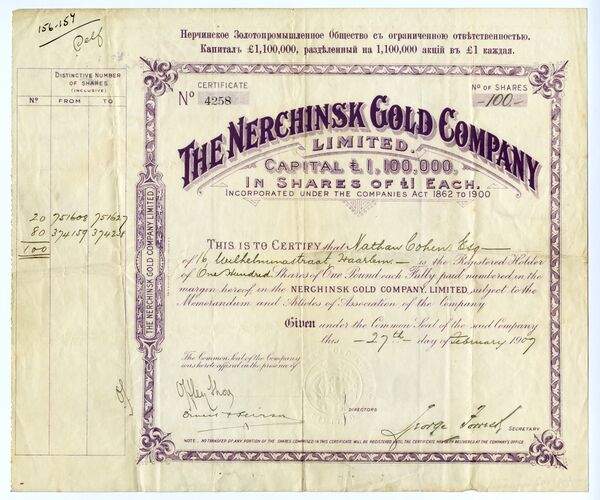 156-157
Нерчинское Золотопромышленное Общество съ ограниченною отвѣтственностью.
Капиталъ £1,100,000, раздѣленный на 1,100,000 акцій въ £1 каждая.
Distinctive Number
of Shares
(inclusive)
No From To
20 751608 751627
80
100
Certificate
No 4258
No of Shares
-100-
The Nerchinsk Gold Company
Limited.
Capital £1,100,000,
In Shares of £1 Each.
Incorporated under the Companies Act 1862 to 1900
The Nerchinsk Gold Company Limited.
This is to Certify that Nathan Cohen Esq
of 16, Wilhelminastraat Haarlem is the Registered Holder
of One Hundred Shares of One Pound each Fully paid numbered in the
margin hereof in the Nerchinsk Gold Company, Limited, subject to the
Memorandum and Articles of Association of the Company
Given under the Common Seal of the said Company
this - 27th - day of February 1907
The Common Seal of the Company
was hereto affixed in the presence of
Directors
George
Secretary
Note.. No transfer of any portion of the shares comprised in this certificate will be registered until the certificate has been delivered at the company's office.